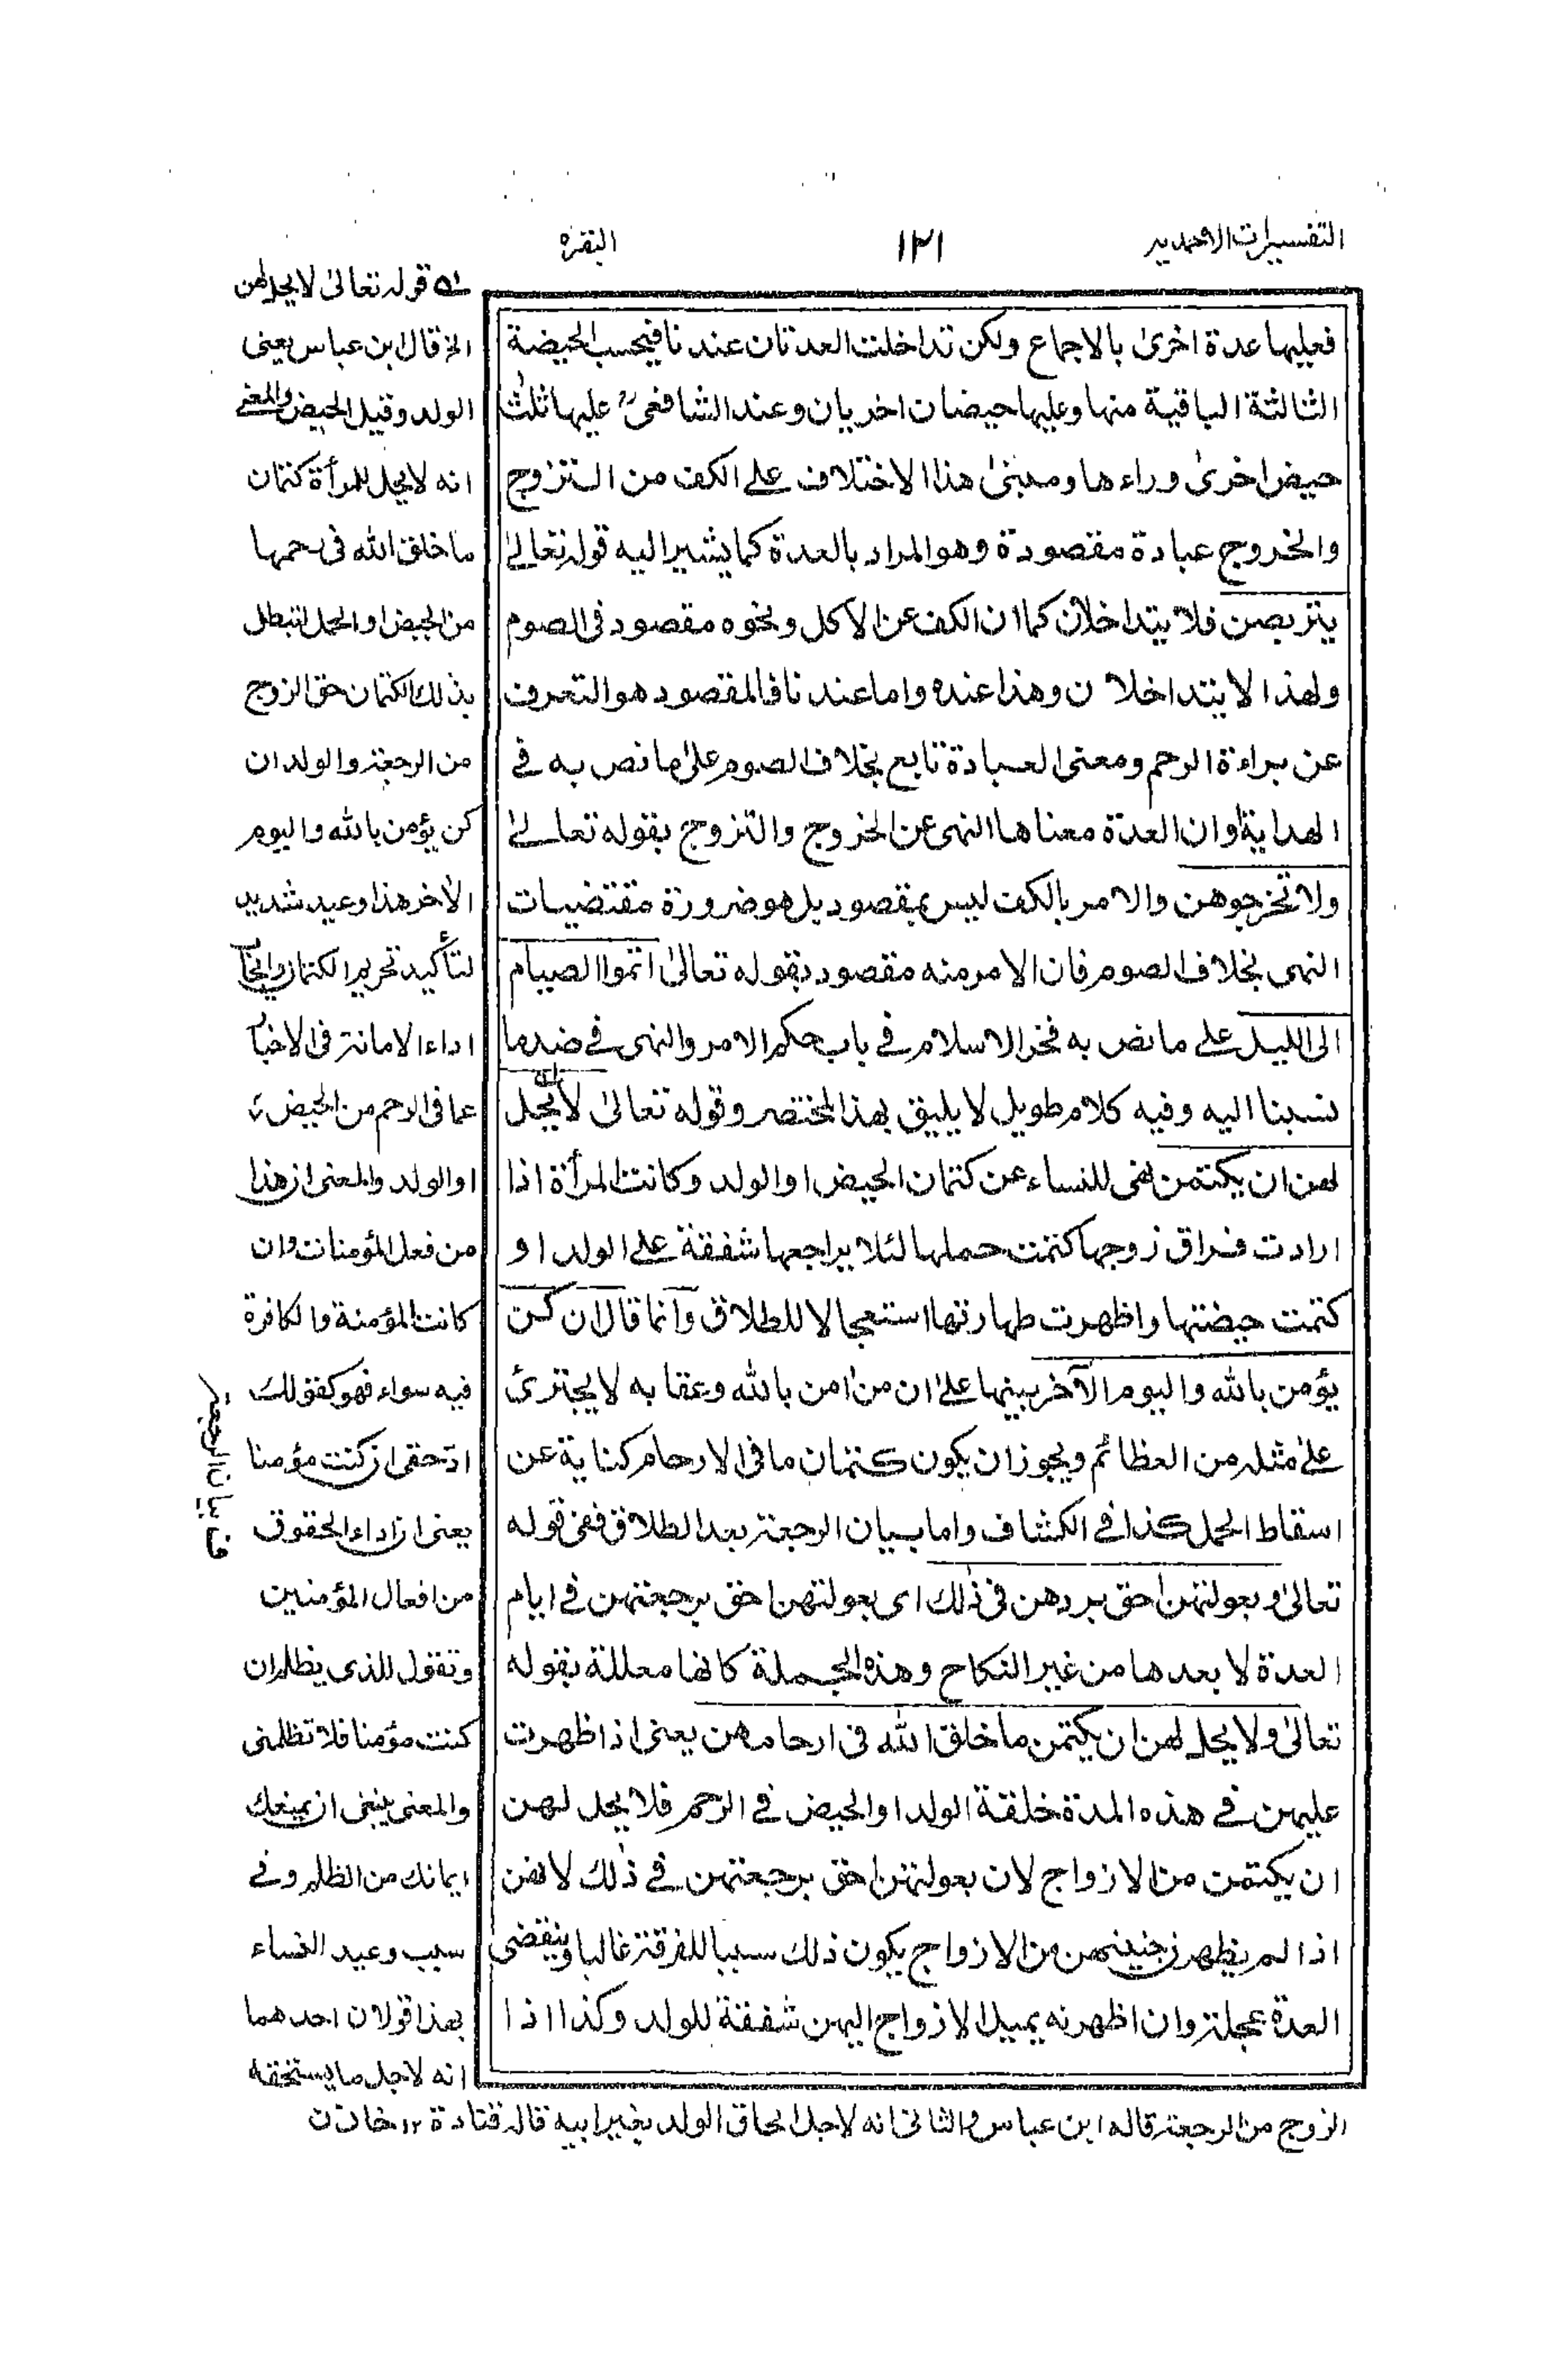 التفسيرات الاحمدية
١٢١
البقرة
فعليها عدة اخرىٰ بالاجماع ولكن تداخلت العدتان عندنا فيحسب الحيضة
الثالثة الباقية منها وعليها حيضان اخريان وعند الشافعىؒ عليها ثلٰث
حيض اخرىٰ وراءها ومبنىٰ هذا الاختلاف علے الكف من التزوج
والخروج عبادة مقصودة وهو المراد بالعدة كما يشير اليه قوله تعالىٰ
يتربصن فلا يتداخلان كما ان الكف عن الاكل ونحوه مقصود فى الصوم
ولهذا لا يتداخلان وهذا عنده واما عندنا فالمقصود هو التعرف
عن براءة الرحم ومعنى العبادة تابع بخلاف الصوم علىٰ ما نص به فے
الهداية او ان العدة معناها النهى عن الخروج والتزوج بقوله تعالےٰ
ولا تخرجوهن والامر بالكف ليس بمقصود بل هو ضرورة مقتضيات
النهى بخلاف الصوم فان الامر منه مقصود بقوله تعالىٰ اتموا الصيام
الى الليل علے ما نص به فخر الاسلام فے باب حكم الامر والنهى فے ضد ما
نسبنا اليه وفيه كلام طويل لا يليق بهذا المختصر وقوله تعالىٰ لا يحل
لهن ان يكتمن نهى للنساء عن كتمان الحيض او الولد وكانت المرأة اذا
ارادت فراق زوجها كتمت حملها لئلا يراجعها شفقة علے الولد او
كتمت حيضتها واظهرت طهارتها استعجالا للطلاق وانما قال ان كن
يؤمن بالله واليوم الآخر بينها علىٰ ان من اٰمن بالله وعقابه لا يجترئ
علےٰ مثله من العظائم ويجوز ان يكون كتمان ما فى الارحام كناية عن
اسقاط الحمل كذا فے الكشاف واما بيان الرجعة بعد الطلاق ففى قوله
تعالىٰ وبعولتهن احق بردهن فى ذٰلك اى بعولتهن احق برجعتهن فے ايام
العدة لا بعدها من غير النكاح وهذه الجملة كانها معللة بقوله
تعالىٰ ولا يحل لهن ان يكتمن ما خلق الله فى ارحامهن يعنى اذا ظهرت
عليهن فے هذه المدة خلقة الولد او الحيض فے الرحم فلا يحل لهن
ان يكتمن من الازواج لان بعولتهن احق برجعتهن فے ذٰلك لانهن
اذا لم يظهرن جنينهن من الازواج يكون ذلك سببا للفرقة غالبا وينقضى
العدة عجلة وان اظهرنه يميل الازواج اليهن شفقة للولد وكذا اذا
لـه قوله تعالىٰ لا يحل لهن
الخ قال ابن عباس يعنى
الولد وقيل الحيض والمعنے
انه لا يحل للمرأة كتمان
ما خلق الله فى رحمها
من الحيض او الحمل لتبطل
بذلك الكتمان حق الزوج
من الرجعة والولد ان
كن يؤمن بالله واليوم
الاٰخر هذا وعيد شديد
لتأكيد تحريم الكتمان وايجاب
اداء الامانة فى الاخبار
عما فى الرحم من الحيض
او الولد والمعنى ان هذا
من فعل المؤمنات وان
كانت المؤمنة والكافرة
فيه سواء فهو كقولك
ادّ حقى ان كنت مؤمنا
يعنى ان اداء الحقوق
من افعال المؤمنين
وتقول للذى يظلم ان
كنت مؤمنا فلا تظلمنى
والمعنى ينبغى ان يمنعك
ايمانك من الظلم وفے
سبب وعيد النساء
بهذا قولان احدهما
انه لاجل ما يستحقه
الزوج من الرجعة قاله ابن عباس والثانى انه لاجل الحاق الولد بغير ابيه قاله قتادة ١٢ خازن